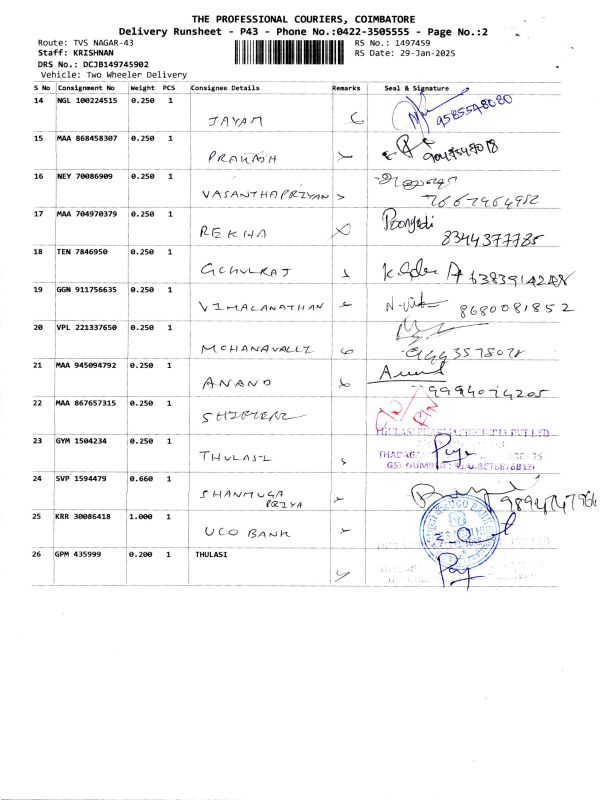 THE PROFESSIONAL COURIERS, COIMBATORE
Delivery Runsheet - P43 - Phone No.:0422-3505555 - Page No.:2
Route: TVS NAGAR-43 RS No.: 1497459
Staff: KRISHNAN RS Date: 29-Jan-2025
DRS No.: DCJB149745902
Vehicle: Two Wheeler Delivery
S No Consignment No Weight PCS Consignee Details Remarks Seal & Signature
14 NGL 100224515 0.250 1
JAYAM
15 MAA 868458307 0.250 1
PRAKASH
16 NEY 70086909 0.250 1
VASANTHAPRIYAN 7667964952
17 MAA 704970379 0.250 1
REKHA 8344377785
18 TEN 7846950 0.250 1
GOKULRAJ
19 GGN 911756635 0.250 1
VIMALANATHAN 8680081852
20 VPL 221337650 0.250 1
MOHANAVALLI
21 MAA 945094792 0.250 1
ANAND 9994074205
22 MAA 867657315 0.250 1
23 GYM 1504234 0.250 1
THULASI
24 SVP 1594479 0.660 1
SHANMUGA
PRIYA
25 KRR 30086418 1.000 1
UCO BANK
26 GPM 435999 0.200 1 THULASI